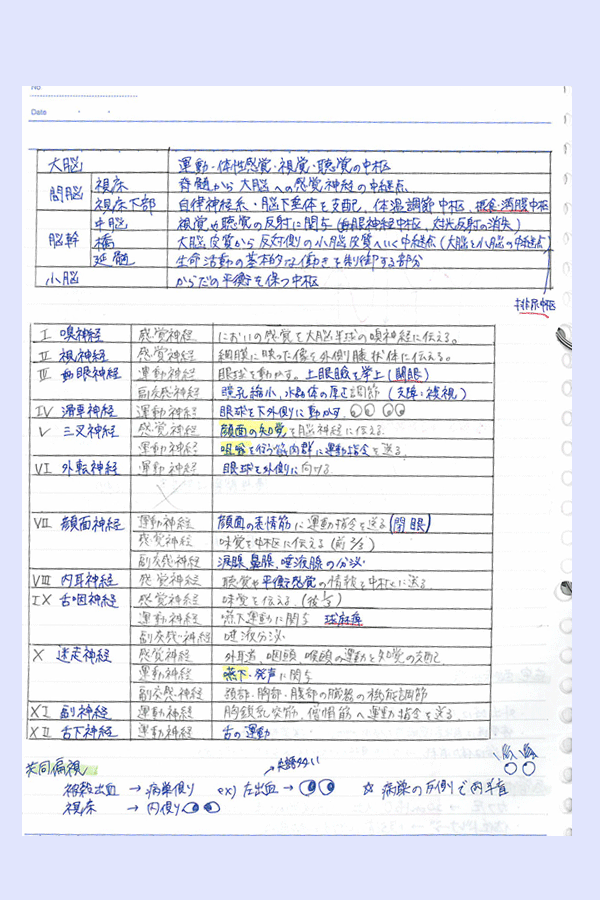 No
Date
大脳 運動・体性感覚・視覚・聴覚の中枢
間脳 視床 脊髄から大脳への感覚神経の中継点
視床下部 自律神経系・脳下垂体を支配、体温調節中枢、摂食・満腹中枢
脳幹 中脳 視覚や聴覚の反射に関与(動眼神経中枢、対光反射の消失)
橋 大脳皮質から反対側の小脳皮質へいく中継点(大脳と小脳の中継点)
延髄 生命活動の基本的な働きを制御する部分
小脳 からだの平衡を保つ中枢
排尿中枢
I 嗅神経 感覚神経 においの感覚を大脳半球の嗅神経に伝える。
II 視神経 感覚神経 網膜に映った像を外側膝状体に伝える。
III 動眼神経 運動神経 眼球を動かす。上眼瞼を挙上(開眼)
副交感神経 瞳孔縮小、水晶体の厚さ調節
IV 滑車神経 運動神経 眼球を下外側に動かす。
V 三叉神経 感覚神経 顔面の知覚を脳神経に伝える
運動神経 咀嚼を行う筋肉群に運動指令を送る
VI 外転神経 運動神経 眼球を外側に向ける
VII 顔面神経 運動神経 顔面の表情筋に運動指令を送る(閉眼)
感覚神経 味覚を中枢に伝える(前2/3)
副交感神経 涙腺、鼻腺、唾液腺の分泌
VIII 内耳神経 感覚神経 聴覚や平衡感覚の情報を中枢に送る
IX 舌咽神経 感覚神経 味覚を伝える。(後1/3)
運動神経 嚥下運動に関与 球麻痺
副交感神経 唾液分泌
X 迷走神経 感覚神経 外耳道、咽頭、喉頭の運動と知覚の支配
運動神経 嚥下・発声に関与
副交感神経 頚部・胸部・腹部の臓器の機能調節
XI 副神経 運動神経 胸鎖乳突筋、僧帽筋へ運動指令を送る。
XII 舌下神経 運動神経 舌の運動
共同偏視
被殻出血 → 病巣側 ex) 左出血 →
視床 → 内側
☆ 病巣の方側で